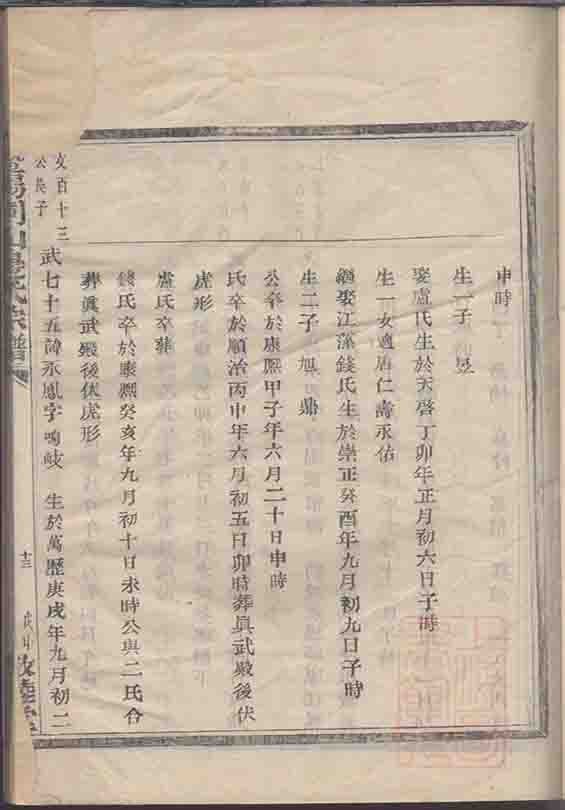 申時
生一子 昱
娶盧氏生於天啓丁卯年正月初六日子時
生一女適唐仁壽永佑
繼娶江藻錢氏生於崇正癸酉年九月初九日子時
生二子 旭 鼎
公卒於康熙甲子年六月二十日申時
氏卒於順治丙申年六月初五日卯時葬眞武殿後伏
虎形
盧氏卒葬
錢氏卒於康熙癸亥年九月初十日未時公與二氏合
葬眞武殿後伏虎形
文百十三
公長子
武七十五諱永鳳字鳴岐 生於萬歷庚戌年九月初二
氏宗譜
十三